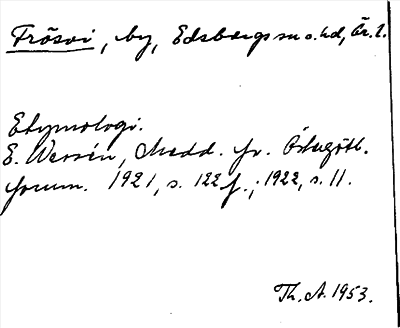 Frösvi, by, Edsbergs sn o. hd, Är. l.
Etymologi.
E. Wessén, Medd. fr. Östergötl.
fornm. 1921, s. 122 f.; 1922, s. 11.
Th. A. 1953.